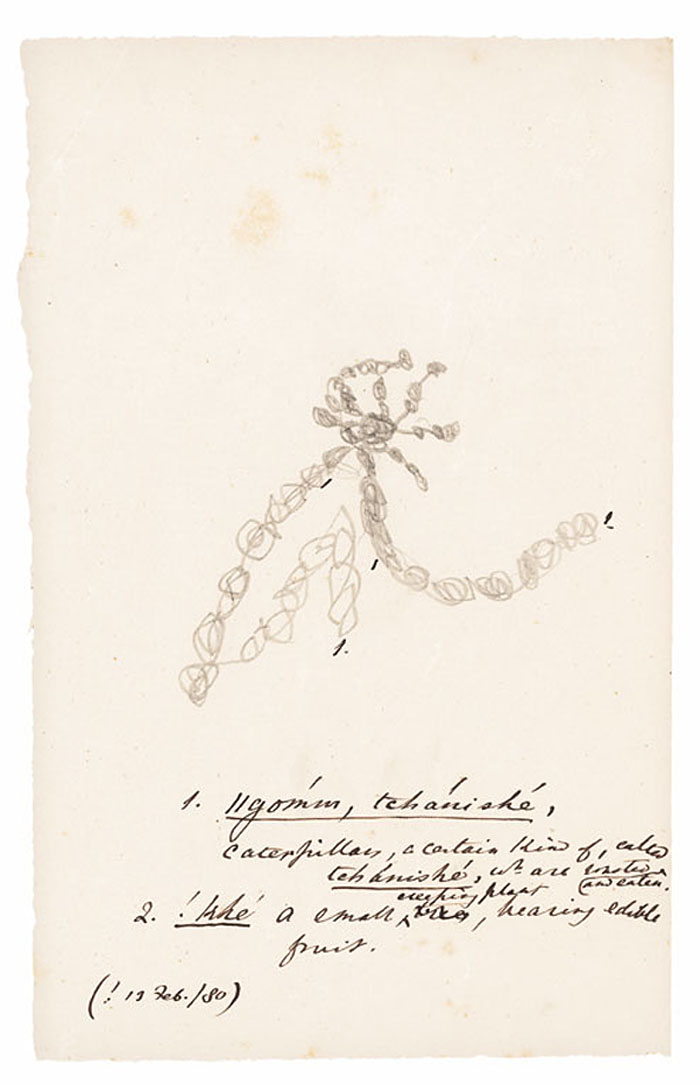 1
1
1
1.
1. ‖gómm, tchánishé,
caterpillars, a certain kind of, called
tchánishé, wh. are roasted
and eaten.
creeping plant
2. !khé a small tree, bearing edible
fruit.
(! 13 Feb./80)